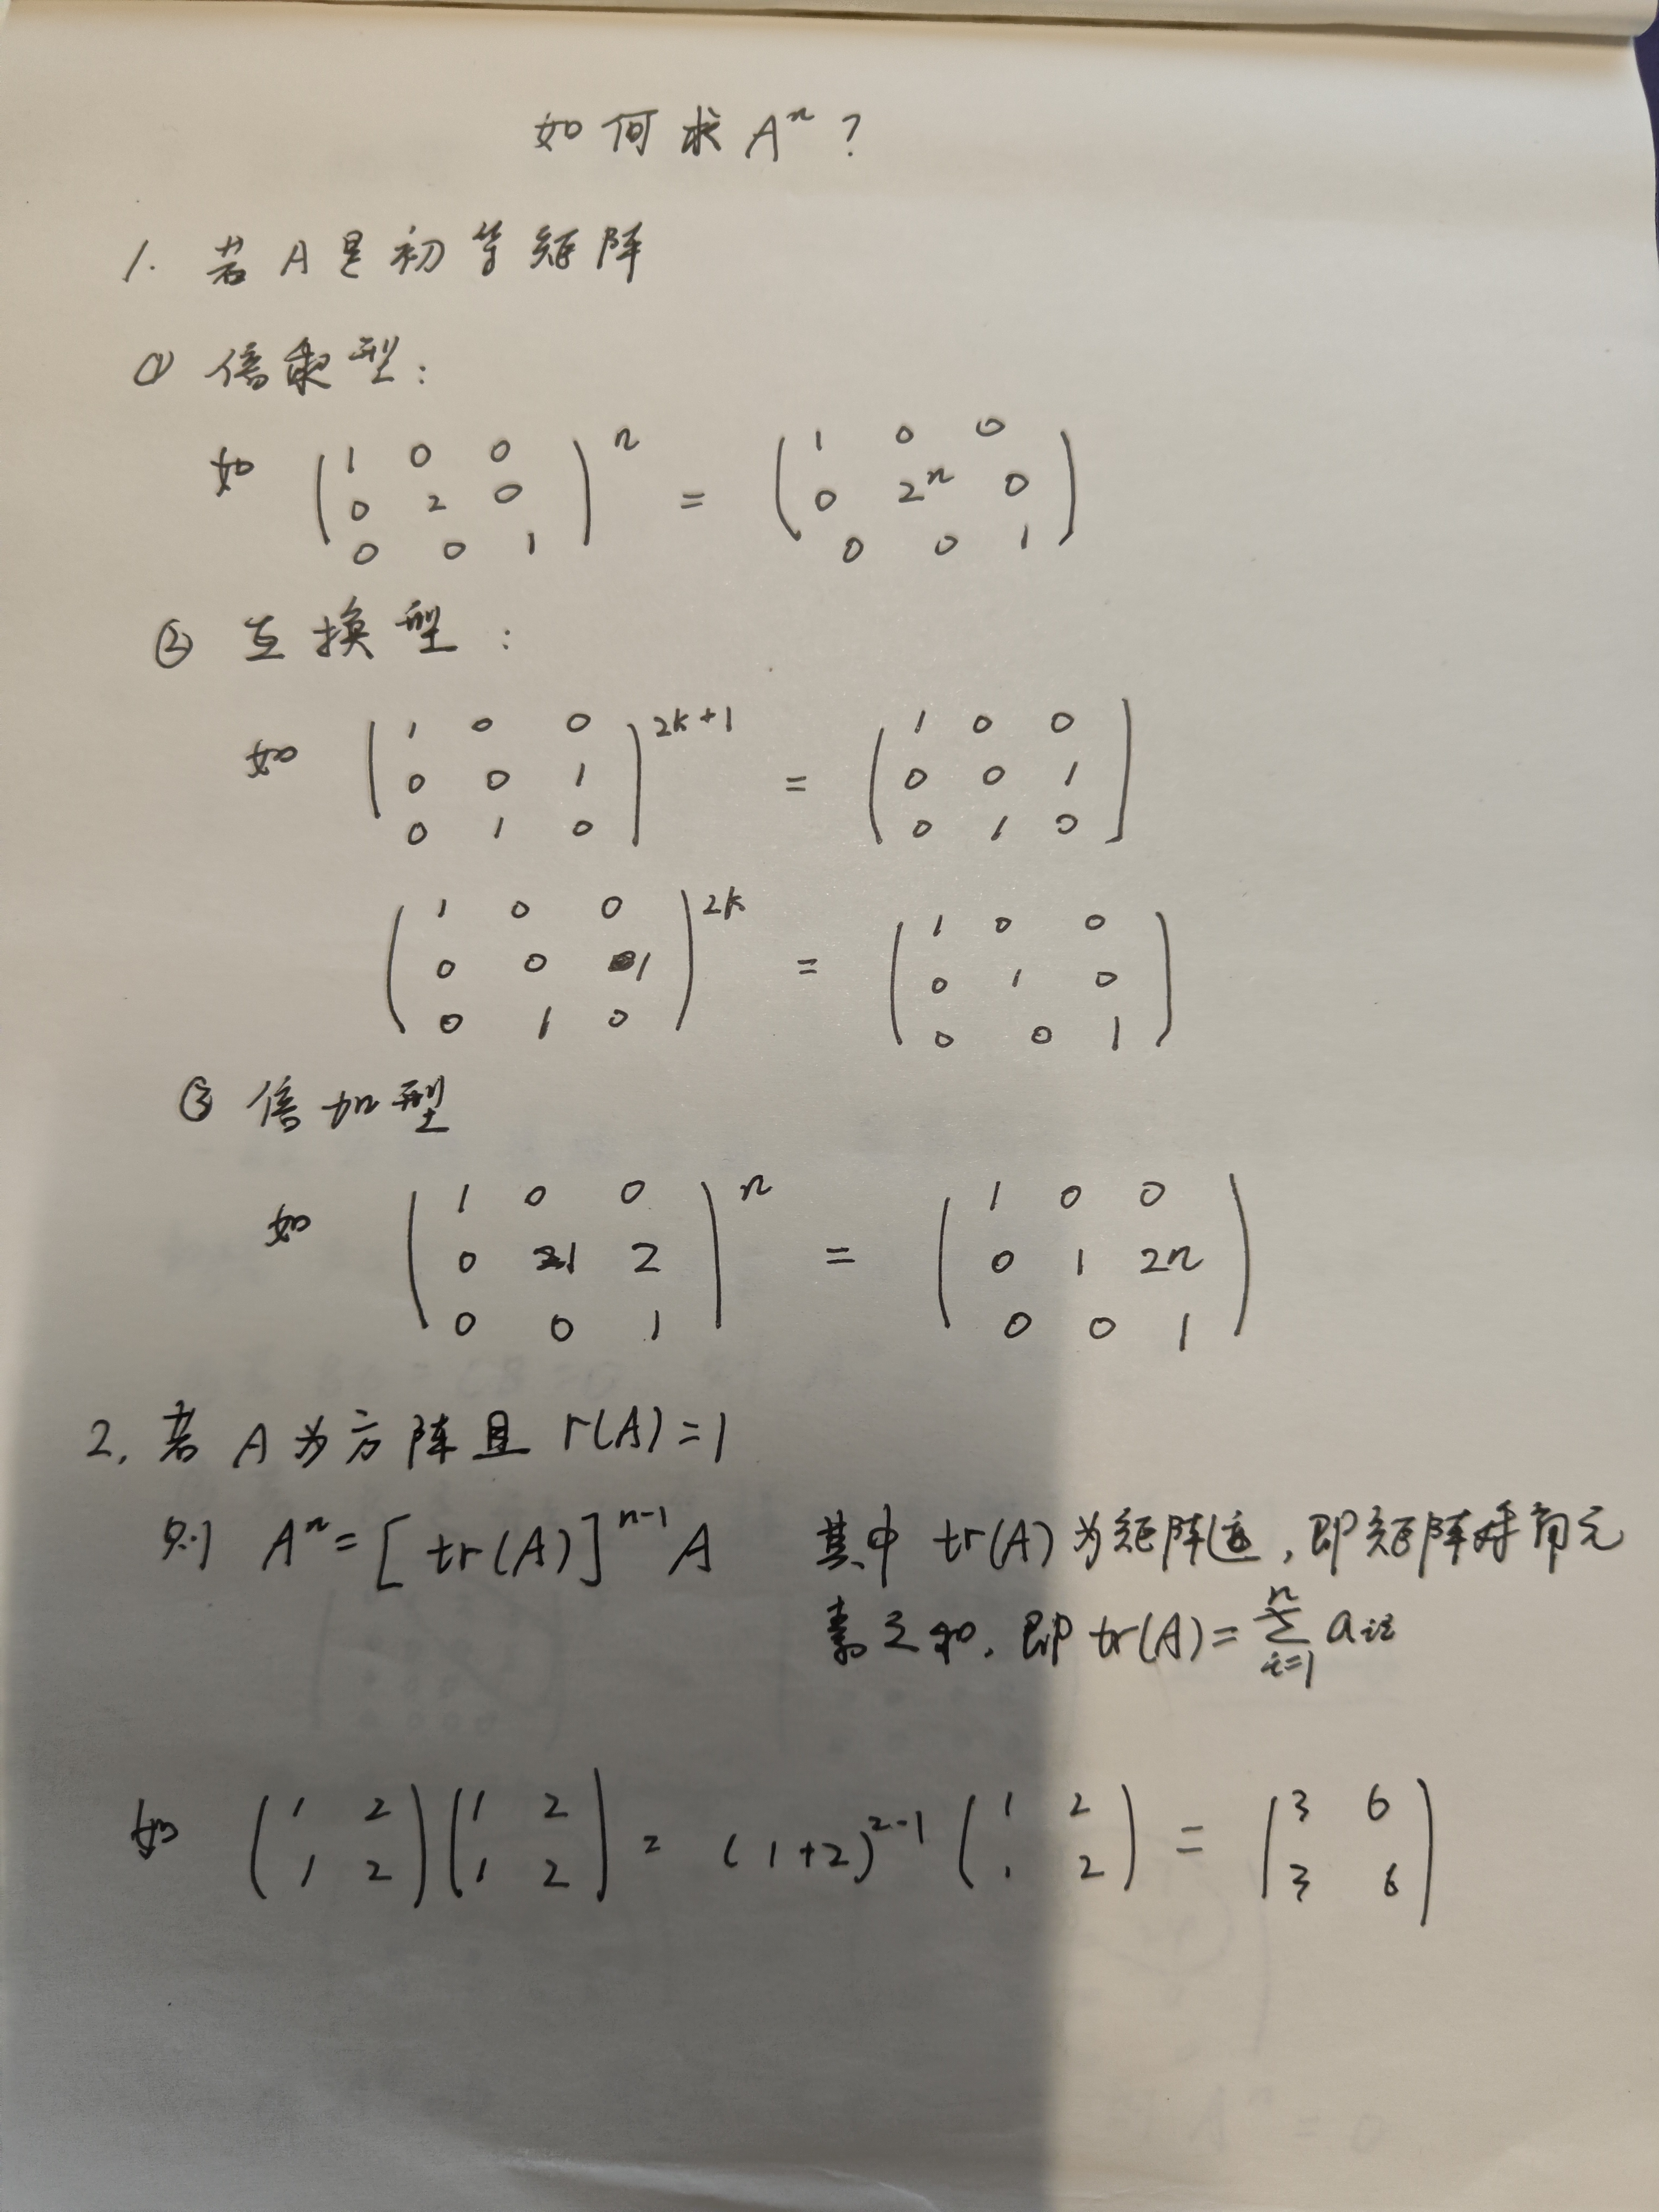 如何求 Aⁿ?
1. 若 A 是初等矩阵
① 倍乘型:
如 (1 0 0; 0 2 0; 0 0 1)ⁿ = (1 0 0; 0 2ⁿ 0; 0 0 1)
② 互换型:
如 (1 0 0; 0 0 1; 0 1 0)^{2k+1} = (1 0 0; 0 0 1; 0 1 0)
(1 0 0; 0 0 1; 0 1 0)^{2k} = (1 0 0; 0 1 0; 0 0 1)
③ 倍加型
如 (1 0 0; 0 1 2; 0 0 1)ⁿ = (1 0 0; 0 1 2n; 0 0 1)
2. 若 A 为方阵且 r(A)=1
则 Aⁿ=[tr(A)]^{n-1}A 其中 tr(A) 为矩阵迹,即矩阵对角元
素之和,即 tr(A)=∑_{i=1}^{n} a_{ii}
如 (1 2; 1 2)(1 2; 1 2) = (1+2)^{2-1} (1 2; 1 2) = (3 6; 3 6)